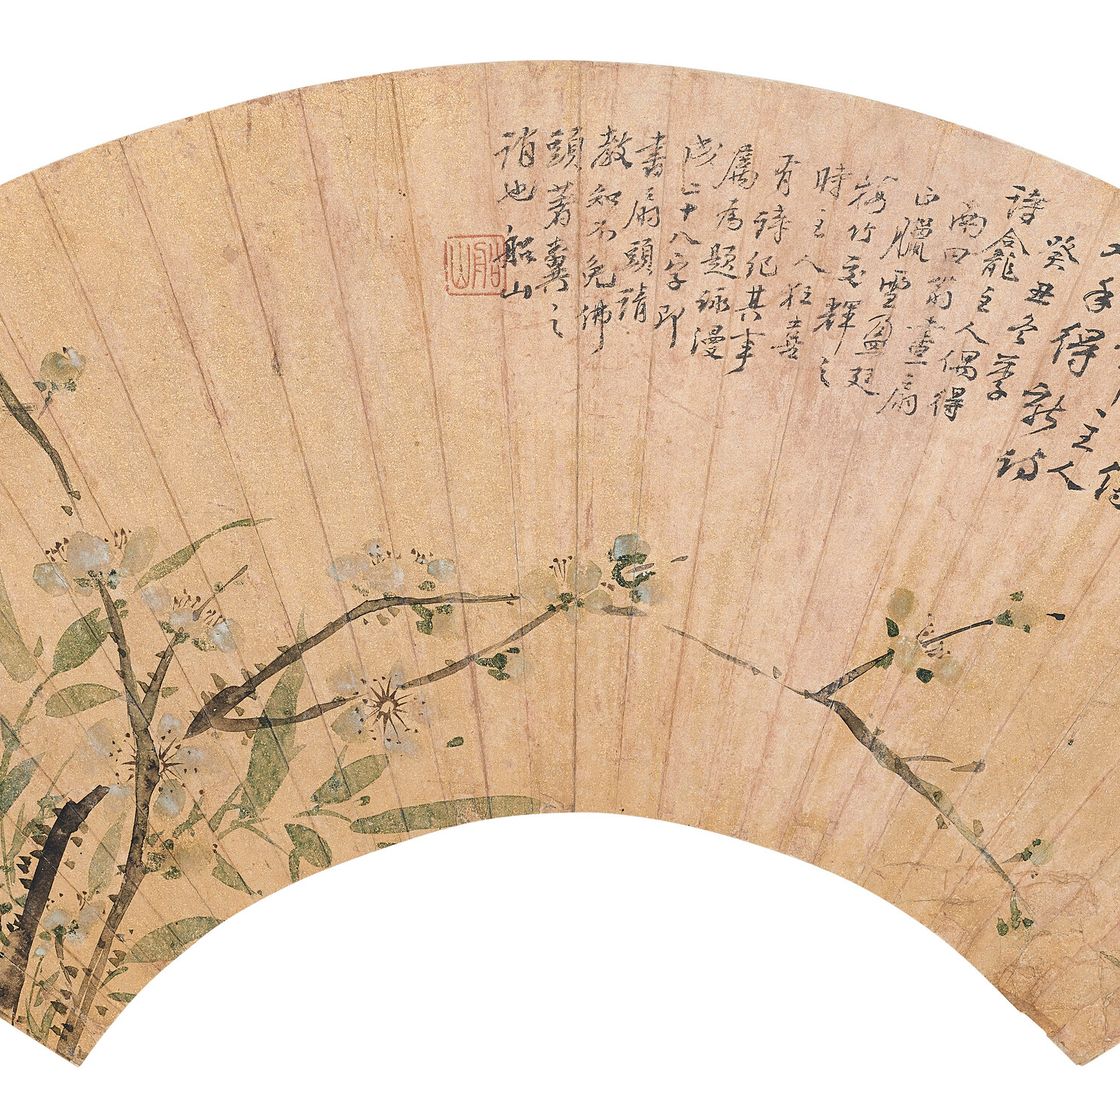 主人
得新詩
癸丑冬季
詩龕主人偶得
南田翁畫扇
正臘雪盈廷
梅竹交輝之
時主人狂喜
有詩紀其事
屬為題詠漫
成二十八字即
書扇頭請
教知不免佛
頭著糞之
誚也 船山
船山